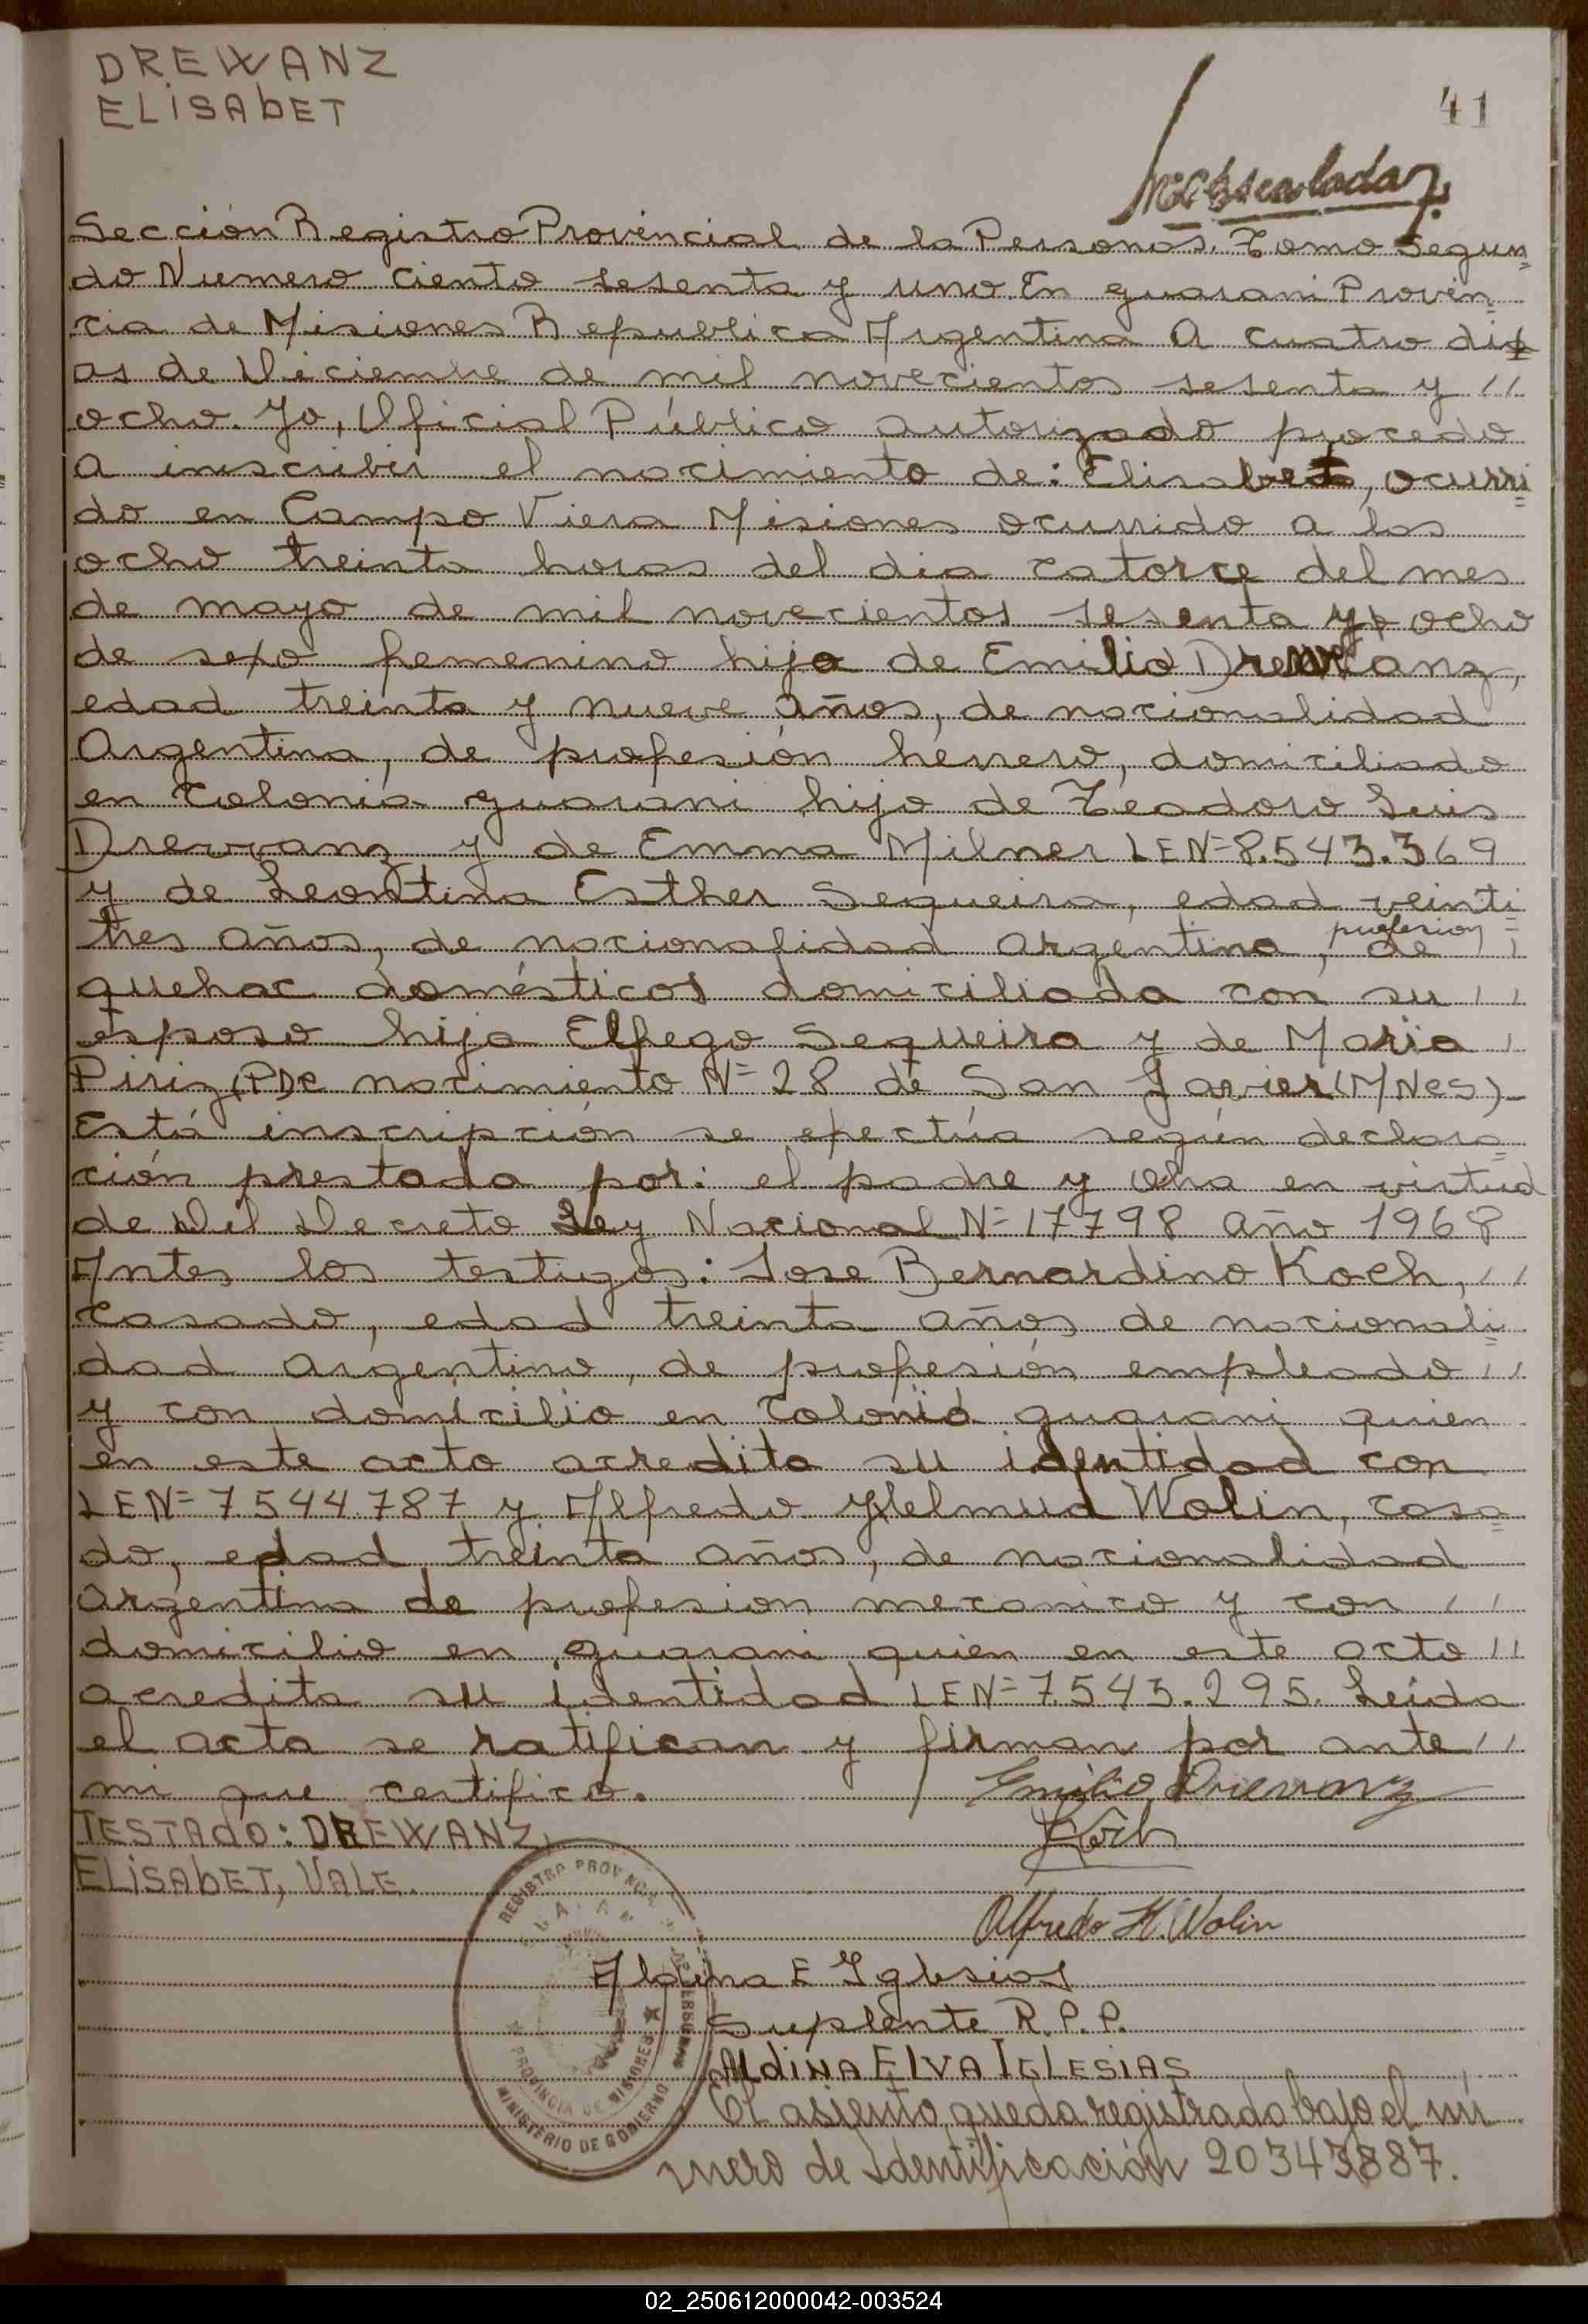 DREWANZ
ELISAbET
41
Sección Registro Provincial de la Personas. Tomo Segun=
do Numero ciento sesenta y uno. En guarani Provin=
cia de Misiones Republica Argentina A cuatro di
as de Diciembre de mil novecientos sesenta y //
ocho. Yo, Oficial Público autorizado procedo
a inscribir el nacimiento de: Elisabet, ocurri=
do en Campo Viera Misiones ocurrido a las
ocho treinta horas del dia catorce del mes
de mayo de mil novecientos sesenta y ocho
de sexo femenino hija de Emilio Drewanz,
edad treinta y nueve años, de nacionalidad
Argentina, de profesión herrero, domiciliado
en Colonia guarani hijo de Teodoro Luis
Drewanz y de Emma Milner LEN=8.543.369
y de Leontina Esther Sequeira, edad veinti=
tres años, de nacionalidad argentina, profesion de /
quehac domésticos domiciliada con su //
esposo hija Elfego Sequeira y de Maria /
Piriz, (PDe nacimiento N=28 de San Javier (M/Nes)-
Está inscripción se efectúa según declara=
ción prestada por: el padre y Obra en virtud
de Del Decreto Ley Nacional N=17798 año 1968
Antes los testigos: Jose Bernardino Koch, //
Casado, edad treinta años de nacionali=
dad argentino, de profesión empleado //
y con domicilio en Colonia guarani quien
en este acto acredita su identidad con
LEN=7544.787 y Alfredo Helmud Wolin, casa=
do, edad treinta años, de nacionalidad
argentina de profesion mecanico y con //
domicilio en guarani quien en este acto //
acredita su identidad LEN=7.543.295. Leida
el acta se ratifican y firman por ante //
mi que certifico. Emilio Drewanz
TESTADO: DREWANZ, Koch
ELISAbET, VALE.
Alfredo H. Wolin
Aldina E Iglesias
Suplente R.P.P.
ALdINA ELVA IGLESIAS
El asiento queda registrado bajo el nú
mero de Identificación 20343887.
REGISTRO PROV
PROVINCIA DE MISIONES
MINISTERIO DE GOBIERNO
02_250612000042-003524